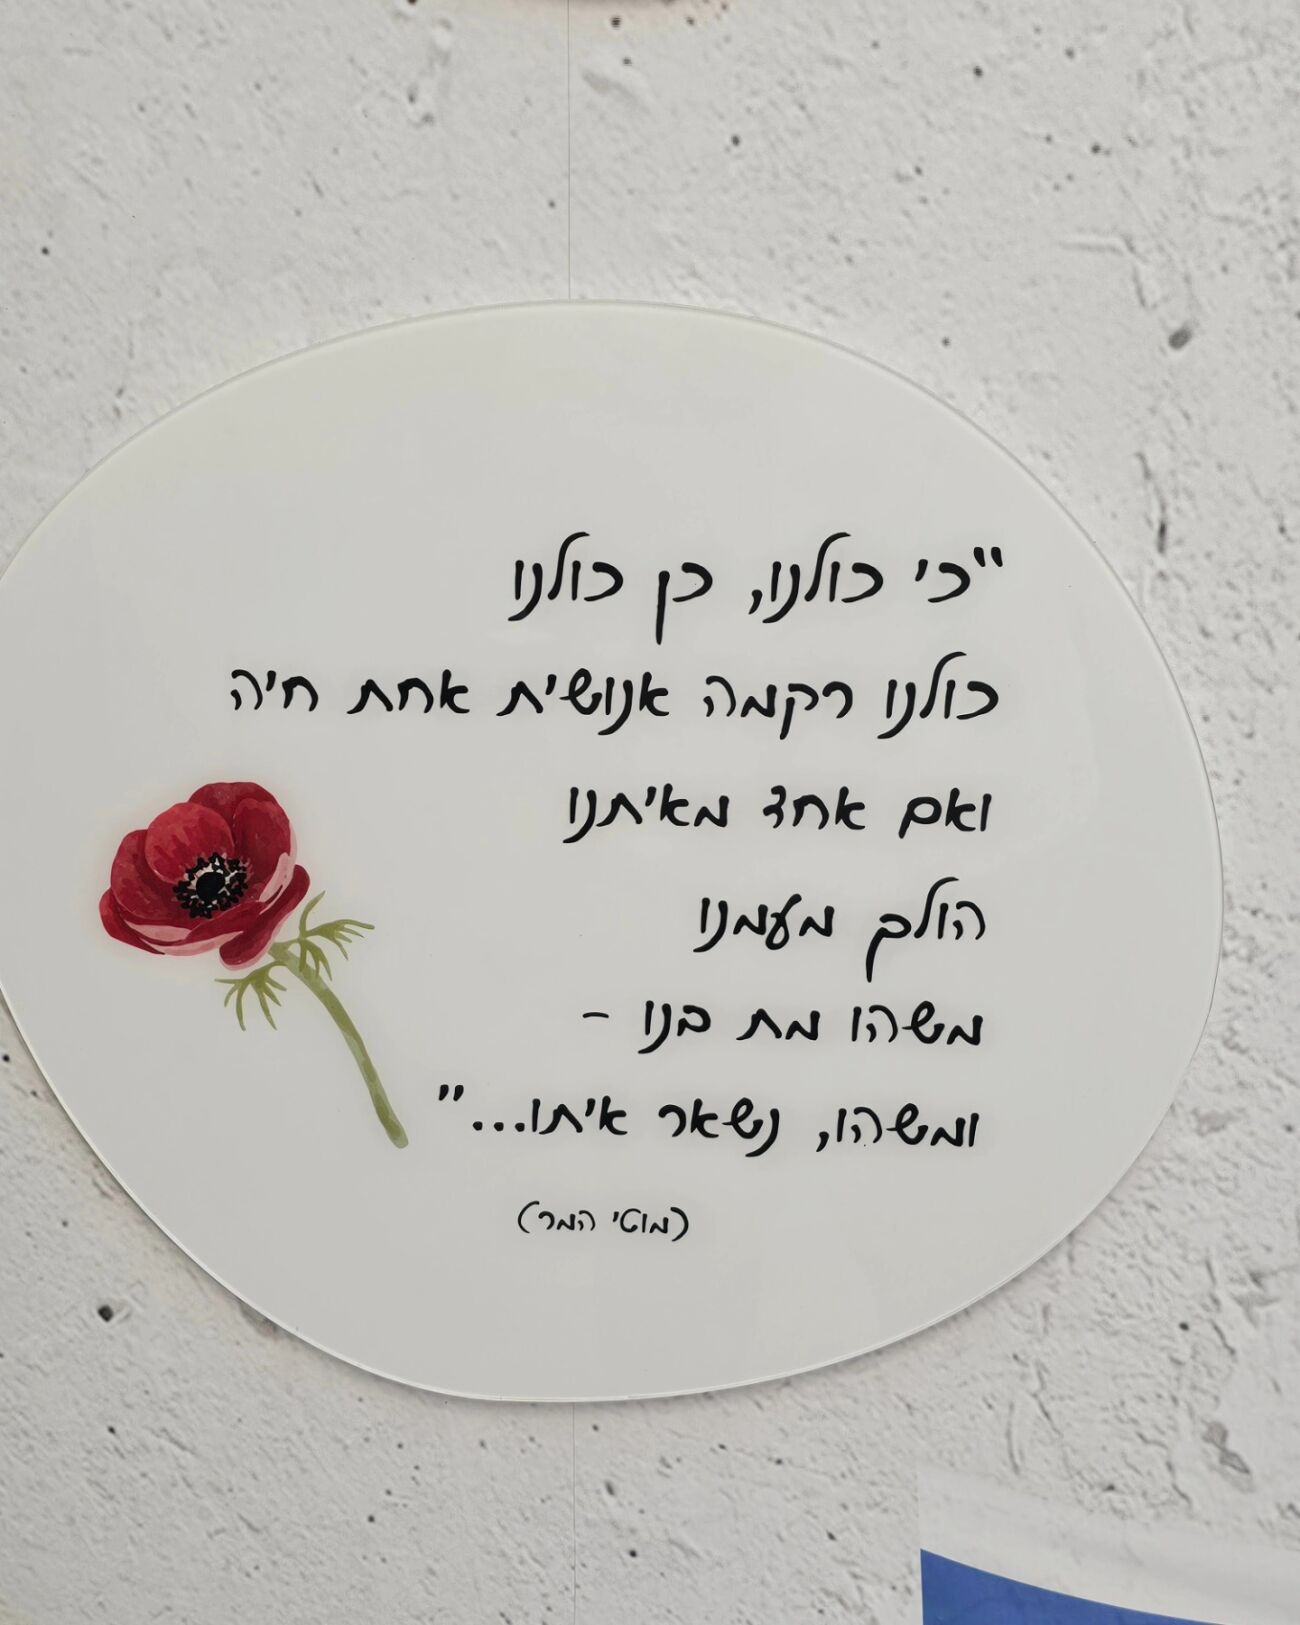 "כי כולנו, כן כולנו
כולנו רקמה אנושית אחת חיה
ואם אחד מאיתנו
הולך מעמנו
משהו מת בנו -
ומשהו, נשאר איתו..."
(מוטי המר)